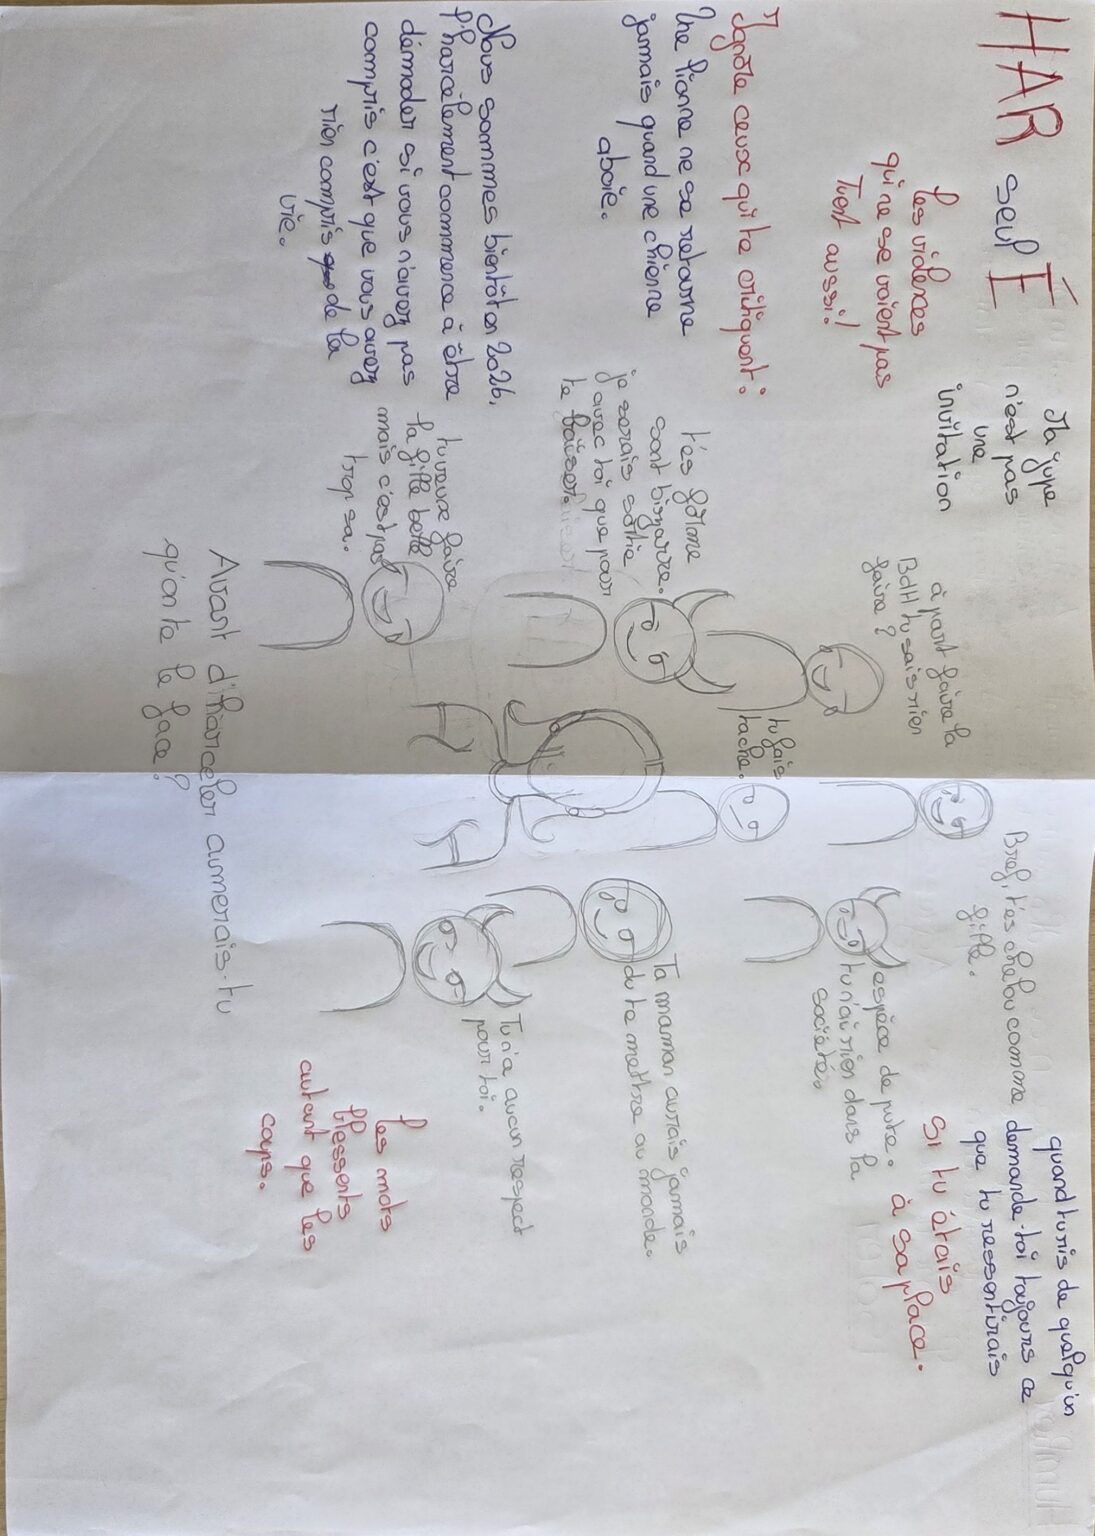 HAR seul É
Les violences
qui ne se voient pas
Tuent aussi!
Ma jupe
n'est pas
une
invitation
quand tu ris de quelqu'un
demande-toi toujours ce
que tu ressentirais
SI tu étais
à sa place.
Bref, t'es chebu comme
fille.
à part faire la
BdH tu sais rien
faire ?
espèce de pute.
tu n'ai rien dans la
société.
Ignore ceux qui te critiquent :
Une lionne ne se retourne
jamais quand une chienne
aboie.
tu fais
tache.
t'es forme
sont bizarre.
je serais sortie
avec toi que pour
te baiser.
Ta maman aurais jamais
du te mettre au monde.
Nous sommes bientôt en 2026,
l'harcèlement commence à être
démoder si vous n'avez pas
compris c'est que vous avez
rien compris de la
vie.
tu veux faire
la fille belle
mais c'est pas
trop sa.
Tu n'a aucun respect
pour toi.
Les mots
blessents
autant que les
coups.
Avant d'harceler aimerais-tu
qu'on te le face ?